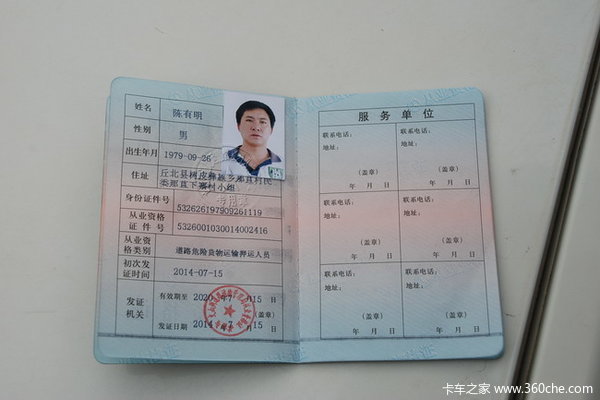 姓名 陈有明
性别 男
出生年月 1979-09-26
住址 丘北县树皮彝族乡那直村民
委那直下寨村小组
身份证件号 532626197909261119
从业资格
证件号 5326001030014002416
从业资
格类别 道路危险货物运输押运人员
初次发
证时间 2014-07-15
发证
机关
有效期至 2020年7月15日
(盖章)
发证日期 2014年7月15日
服务单位
联系电话: 联系电话:
地址: 地址:
(盖章) (盖章)
年 月 日 年 月 日
联系电话: 联系电话:
地址: 地址:
(盖章) (盖章)
年 月 日 年 月 日
联系电话: 联系电话:
地址: 地址:
(盖章) (盖章)
年 月 日 年 月 日
卡车之家 www.360che.com